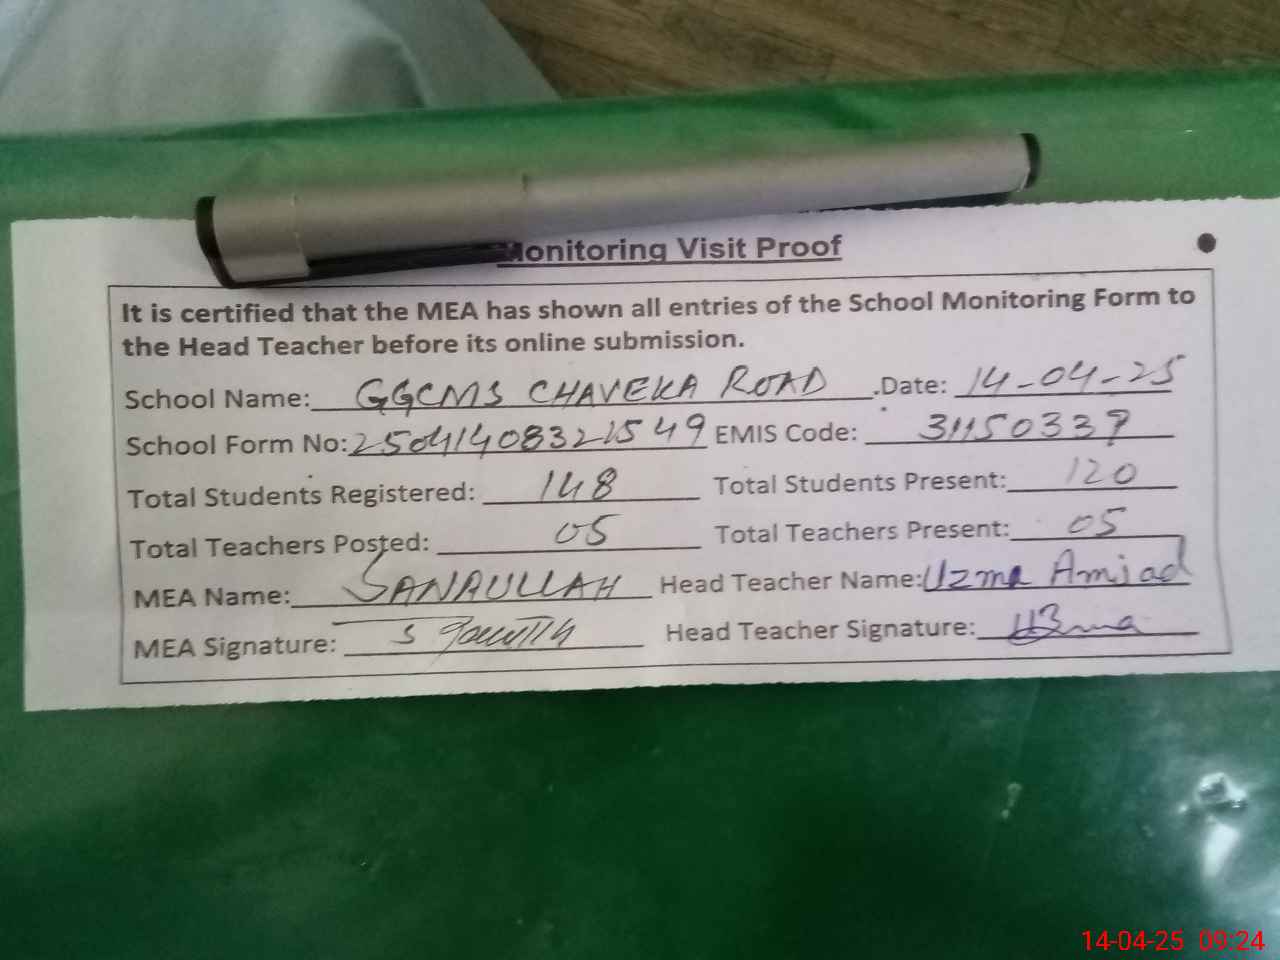 Monitoring Visit Proof
It is certified that the MEA has shown all entries of the School Monitoring Form to
the Head Teacher before its online submission.
School Name: GGCMS CHAVEKA ROAD .Date: 14-04-25
School Form No: 250414083221549 EMIS Code: 31150337
Total Students Registered: 148 Total Students Present: 120
Total Teachers Posted: 05 Total Teachers Present: 05
MEA Name: SANAULLAH Head Teacher Name: Uzma Amjad
MEA Signature: Head Teacher Signature: Uzma
14-04-25 09:24